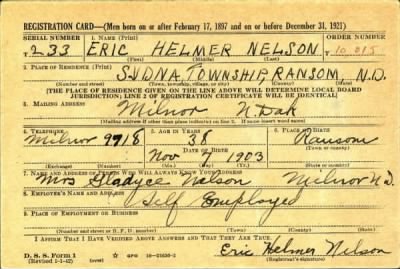 REGISTRATION CARD—(Men born on or after February 17, 1897 and on or before December 31, 1921)
SERIAL NUMBER 1. NAME (Print) ORDER NUMBER
T 233 ERIC HELMER NELSON T 10 015
(First) (Middle) (Last)
2. PLACE OF RESIDENCE (Print)
SYDNA TOWNSHIP, RANSOM, N.D.
(Number and street) (Town, township, village, or city) (County) (State)
[THE PLACE OF RESIDENCE GIVEN ON THE LINE ABOVE WILL DETERMINE LOCAL BOARD
JURISDICTION; LINE 2 OF REGISTRATION CERTIFICATE WILL BE IDENTICAL]
3. MAILING ADDRESS
Milnor N. Dak
[Mailing address if other than place indicated on line 2. If same insert word same]
4. TELEPHONE 5. AGE IN YEARS 6. PLACE OF BIRTH
Milnor 9918 38 Ransom
DATE OF BIRTH
Nov 1903
(Exchange) (Number) (Mo.) (Day) (Yr.) (State or country)
7. NAME AND ADDRESS OF PERSON WHO WILL ALWAYS KNOW YOUR ADDRESS
Mrs Gladyce Nelson Milnor N.D.
8. EMPLOYER'S NAME AND ADDRESS
Self Employed
9. PLACE OF EMPLOYMENT OR BUSINESS
(Number and street or R. F. D. number) (Town) (County) (State)
I AFFIRM THAT I HAVE VERIFIED ABOVE ANSWERS AND THAT THEY ARE TRUE.
D. S. S. Form 1
(Revised 1-1-42) (over) GPO 16—21630-2
Eric Helmer Nelson
(Registrant's signature)